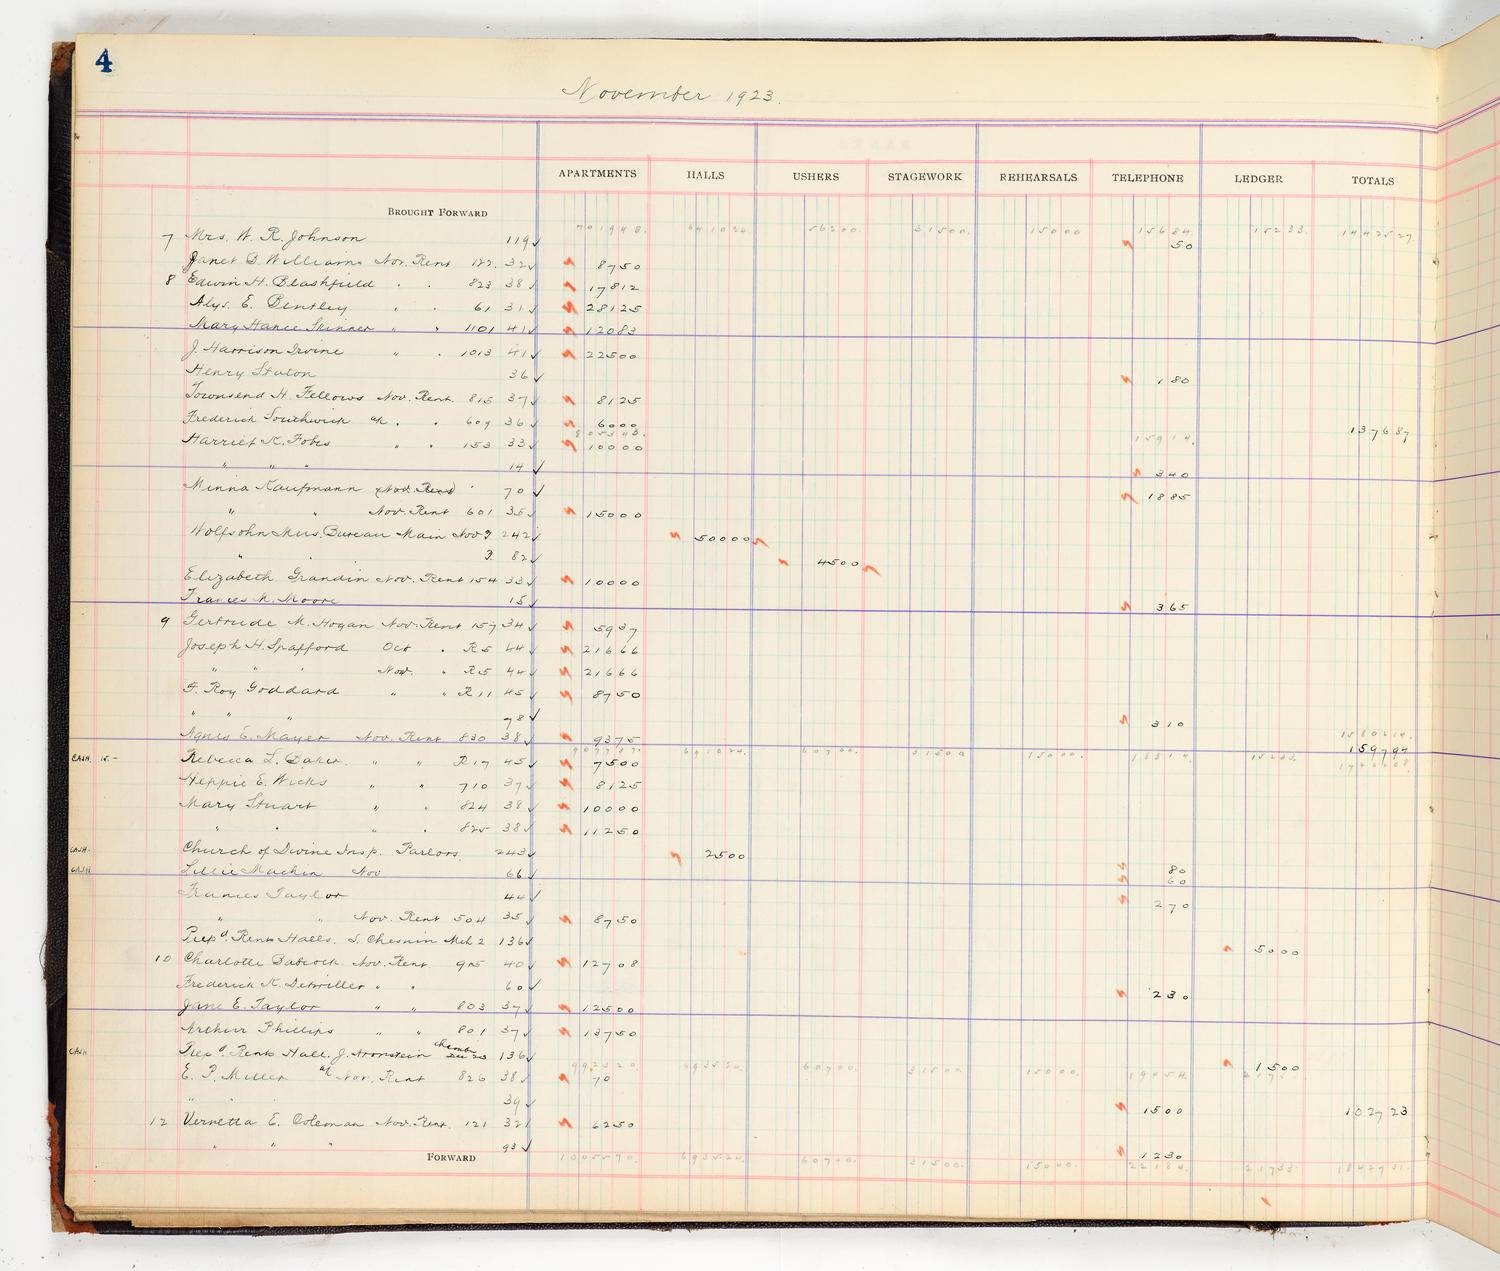 4
November 1923.
APARTMENTS HALLS USHERS STAGEWORK REHEARSALS TELEPHONE LEDGER TOTALS
BROUGHT FORWARD 701948. 641024. 56200. 31500. 15000 15684. 15233. 1442527.
7 Mrs. W. R. Johnson 119 ✓ 50
Janet B. Williams Nov. Rent 122. 32 ✓ 8750
8 Edwin H. Blashfield . . 823 38 ✓ 17812
Alys. E. Bentley . . 61 31 ✓ 28125
Mary Hance Skinner " . 1101 41 ✓ 12083
J. Harrison Irvine " . 1013 41 ✓ 22500
Henry 36 ✓ 180
Townsend H. Fellows Nov. Rent 815 37 ✓ 8125
Frederick Southwick a/c . . 609 36 ✓ 6000 137687
805343. 15914.
Harriet K. Fobes " . 153 33 ✓ 10000
" " " 14 ✓ 340
Minna Kaufmann (Nov. Rent) 70 ✓ 1885
" " Nov. Rent 601 35 ✓ 15000
Wolfsohn Mus. Bureau Main Nov 9 242 ✓ 50000
" . 9. 82 ✓ 4500
Elizabeth Grandin Nov. Rent 154 33 ✓ 10000
Frances M. Moore 15 ✓ 365
9 Gertrude M. Hogan Nov. Rent 157 34 ✓ 5937
Joseph H. Spafford Oct . R5 44 ✓ 21666
" " " Nov. . R5 44 ✓ 21666
F. Roy Goddard " " R11 45 ✓ 8750
" " " 78 ✓ 310
Agnes E. Mayer Nov. Rent 830 38 ✓ 9375 1580214.
907737. 691024. 60700. 31500 15000. 18814. 15233. 159794
CASH. 15.- Rebecca L. Baker. " " R17 45 ✓ 7500 1740008
Heppie E. Wicks " " 710 37 ✓ 8125
Mary Stuart " " 824 38 ✓ 10000
" . " . 825 38 ✓ 11250
CASH. Church of Divine Insp. Parlors. 243 ✓ 2500
80
CASH Lillie Machin Nov 66 ✓ 60
Frances Taylor 44 ✓ 270
" " Nov. Rent 504 35 ✓ 8750
Prepd. Rents Halls. L. Chesnin Mch 2 136 ✓ 5000
10 Charlotte Babcock. Nov. Rent 915 40 ✓ 12708
Frederick K. Detwiller " " 60 ✓ 230
Jane E. Taylor " " 803 37 ✓ 12500
Arthur Phillips " " 801 37 ✓ 13750
CASH Prepd. Rents Hall. J. Aronstein Chamber Dec 23 136 ✓ 1500
992320. 693524. 60700. 31500. 15000. 19454. 21733.
E. P. Miller a/c Nov. Rent 826 38 ✓ 70
" " . 39 ✓ 1500 102723
12 Vernetta E. Coleman Nov. Rent. 121 32 ✓ 6250
" " " 93 ✓ 1230
FORWARD 1005570. 693524. 60700. 31500. 15000. 22184. 21733. 1842731.